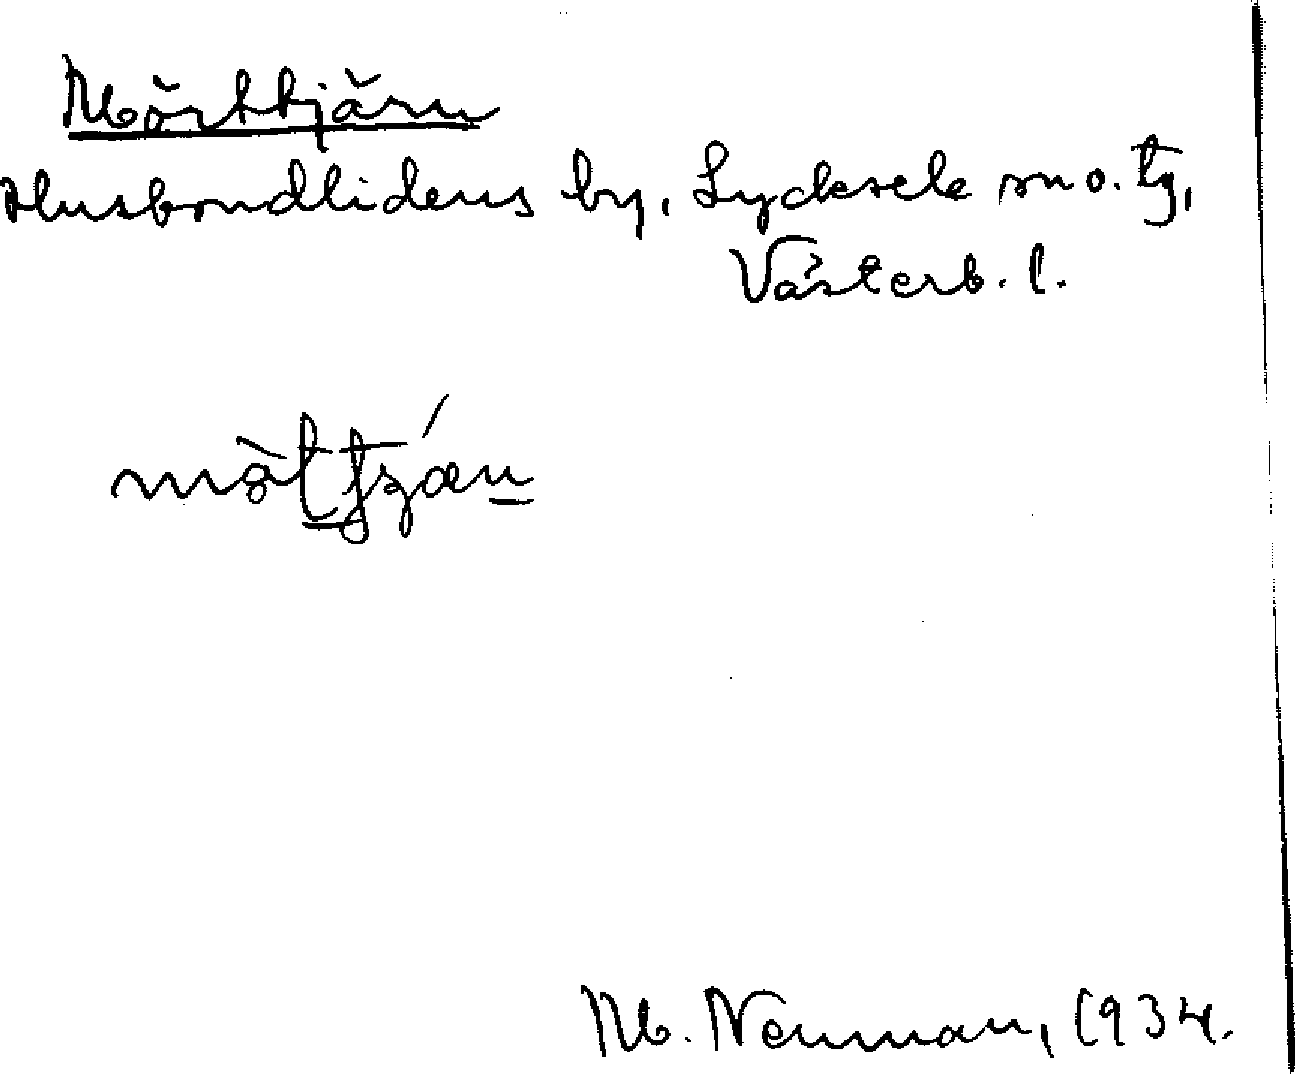 Mörttjärn
Husbondlidens by, Lycksele sn o. tg,
Västerb. l.
M. Neuman, 1934.